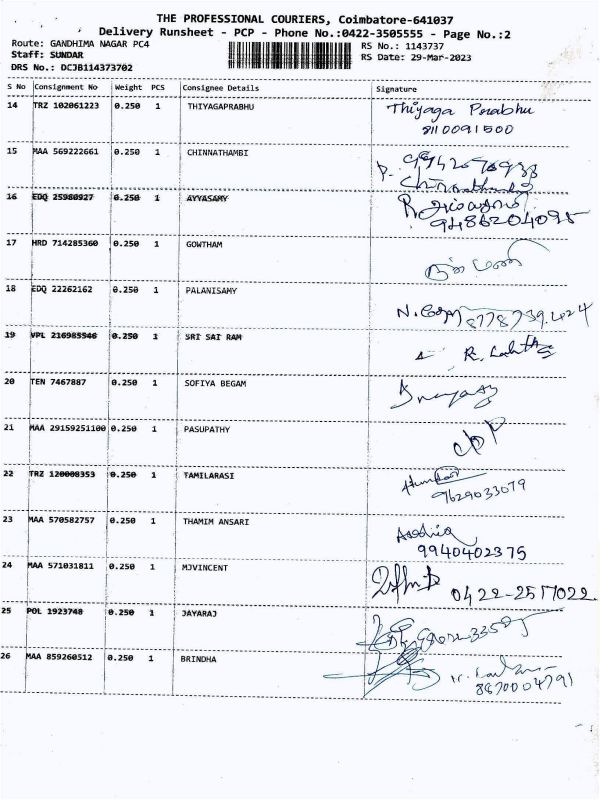 THE PROFESSIONAL COURIERS, Coimbatore-641037
Delivery Runsheet - PCP - Phone No.:0422-3505555 - Page No.:2
Route: GANDHIMA NAGAR PC4 RS No.: 1143737
Staff: SUNDAR RS Date: 29-Mar-2023
DRS No.: DCJB114373702
S No Consignment No Weight PCS Consignee Details Signature
14 TRZ 102061223 0.250 1 THIYAGAPRABHU Thiyaga Prabhu
8110091500
15 MAA 569222661 0.250 1 CHINNATHAMBI
16 EDQ 25980927 0.250 1 AYYASAMY
9486204095
17 HRD 714285360 0.250 1 GOWTHAM
18 EDQ 22262162 0.250 1 PALANISAMY
19 VPL 216985546 0.250 1 SRI SAI RAM
20 TEN 7467887 0.250 1 SOFIYA BEGAM
21 MAA 29159251100 0.250 1 PASUPATHY
22 TRZ 120008353 0.250 1 TAMILARASI
9629033079
23 MAA 570582757 0.250 1 THAMIM ANSARI
9940402375
24 MAA 571031811 0.250 1 MJVINCENT
25 POL 1923748 0.250 1 JAYARAJ
26 MAA 859260512 0.250 1 BRINDHA
8870004791